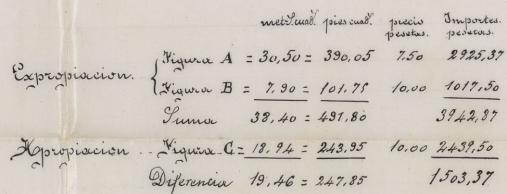 metrs.cuads. pies cuads. precio pesetas. Importes. pesetas.
Expropiacion. Figura A = 30,50 = 390,05 7,50 2925,37
Figura B = 7,90 = 101,75 10,00 1017,50
Suma 38,40 = 491,80 3942,87
Apropiacion .. Figura C = 18,94 = 243,95 10,00 2439,50
Diferencia 19,46 = 247,85 1503,37